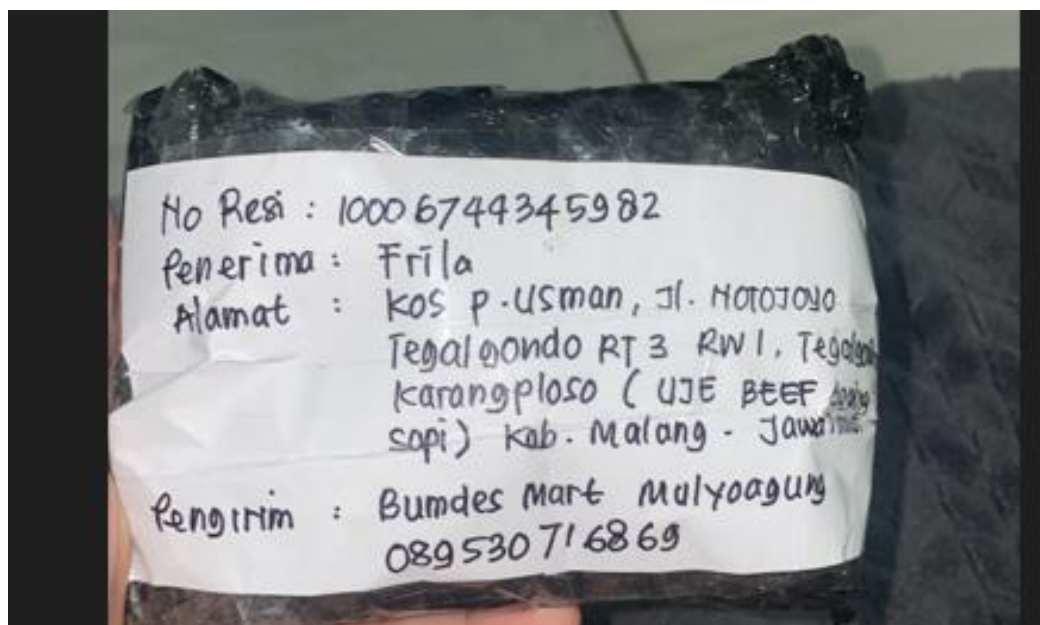 No Resi : 10006744345982
Penerima : Frila
Alamat : Kos P. Usman, Jl. NOTOJOYO
Tegalgondo RT 3 RW 1,
Karangploso ( UJE BEEF
sapi) Kab. Malang - Jawa
Pengirim : Bumdes Mart Mulyoagung
089530716869